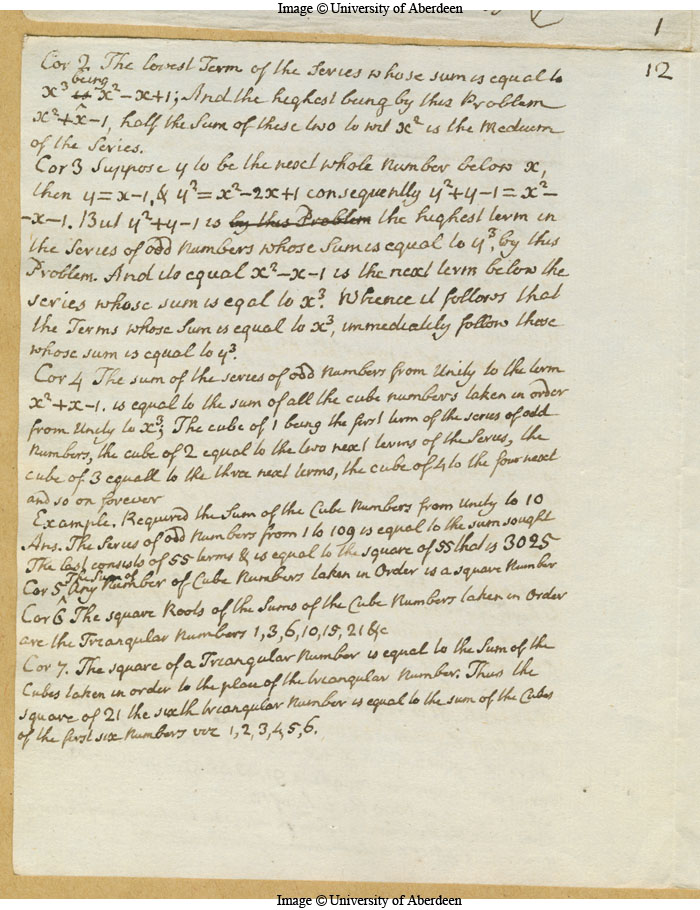 Image © University of Aberdeen
1
12
Cor 2 The lowest Term of the Series whose sum is equal to
being
x³ is x²-x+1; And the highest being by this Problem
x²+x-1, half the Sum of these two to wit x² is the Medium
of the Series.
Cor 3 Suppose y to be the next whole Number below x,
then y=x-1, & y²=x²-2x+1 consequently y²+y-1=x²-
-x-1. But y²+y-1 is by this Problem the highest term in
the Series of odd Numbers whose Sum is equal to y³, by this
Problem. And its equal x²-x-1 is the next term below the
series whose sum is eqal to x³. Whence it follows that
the Terms whose Sum is equal to x³, immediately follow those
whose sum is equal to y³.
Cor 4 The sum of the series of odd Numbers from Unity to the term
x²+x-1. is equal to the sum of all the cube numbers taken in order
from Unity to x³; The cube of 1 being the first term of the series of odd
Numbers, the cube of 2 equal to the two next terms of the Series, the
cube of 3 equall to the three next terms, the cube of 4 to the four next
and so on forever
Example. Required the Sum of the Cube Numbers from Unity to 10
Ans. The Series of odd Numbers from 1 to 109 is equal to the sum sought
The last consists of 55 terms & is equal to the square of 55 that is 3025
The Sum of
Cor 5 Any Number of Cube Numbers taken in Order is a square Number
Cor 6 The square Roots of the Sums of the Cube Numbers taken in Order
are the Triangular Numbers 1, 3, 6, 10, 15, 21 &c
Cor 7. The square of a Triangular Number is equal to the Sum of the
Cubes taken in order to the place of the triangular Number. Thus the
square of 21 the sixth triangular Number is equal to the sum of the Cubes
of the first six Numbers viz 1, 2, 3, 4, 5, 6.
Image © University of Aberdeen